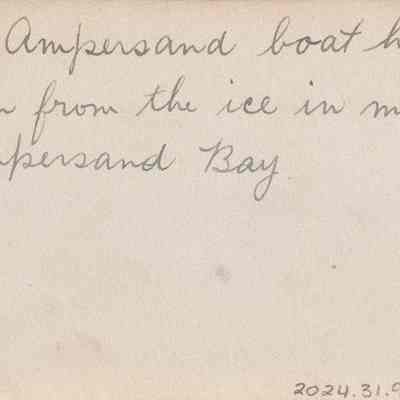 Ampersand boat h
n from the ice in m
mpersand Bay
2024.31.9